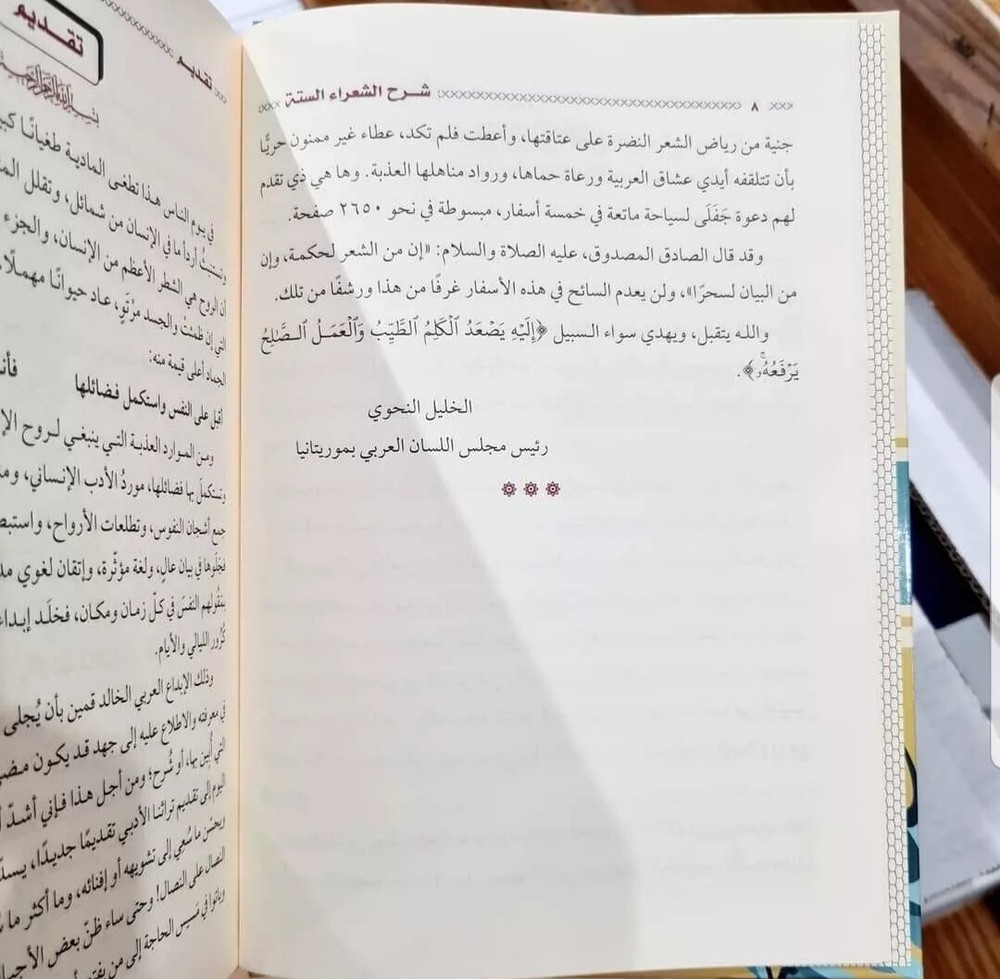 شرح الشعراء الستة ٨
جنية من رياض الشعر النضرة على عتاقتها، وأعطت فلم تكد، عطاء غير ممنون حريًّا
بأن تتلقفه أيدي عشاق العربية ورعاة حماها، ورواد مناهلها العذبة. وها هي ذي تقدم
لهم دعوة جَفَلَى لسياحة ماتعة في خمسة أسفار، مبسوطة في نحو ٢٦٥٠ صفحة.
وقد قال الصادق المصدوق، عليه الصلاة والسلام: «إن من الشعر لحكمة، وإن
من البيان لسحرًا»، ولن يعدم السائح في هذه الأسفار غرفًا من هذا ورشفًا من تلك.
والله يتقبل، ويهدي سواء السبيل ﴿إِلَيْهِ يَصْعَدُ ٱلْكَلِمُ ٱلطَّيِّبُ وَٱلْعَمَلُ ٱلصَّـٰلِحُ
يَرْفَعُهُۥۚ﴾.
الخليل النحوي
رئيس مجلس اللسان العربي بموريتانيا
تقديم
تقديم
بسم الله الرحمن الرحيم
في يوم الناس هذا تطغى المادية طغيانًا
أردأ ما في الإنسان من شمائل، وتقلل
أن الروح هي الشطر الأعظم من الإنسان، والجزء
التي إن ظمئت والجسد مرْتَوٍ، عاد حيوانًا مهملًا
الجماد أعلى قيمة منه:
أقبل على النفس واستكمل فضائلها
ومن الموارد العذبة التي ينبغي لروح
وتستكمل بها فضائلها، موردُ الأدب الإنساني،
جمع أشجان النفوس، وتطلعات الأرواح،
فجلَوها في بيان عالٍ، ولغة مؤثّرة، وإتقان لغوي
النفسَ في كلّ زمان ومكان، فخلَد
كُرُور الليالي والأيام.
وذلك الإبداع العربي الخالد قمين بأن يُجلى
في معرفته والاطلاع عليه إلى جهد قد يكون
بها، أو شُرح؛ ومن أجل هذا فإني أشدّ
اليوم إلى تقديم تراثنا الأدبي تقديمًا جديدًا،
ما سُعِي إلى تشويهه أو إفنائه، وما أكثر ما
النصال على النصال! وحتى ساء ظنّ بعض
وباتوا في مَسِيس الحاجة إلى من